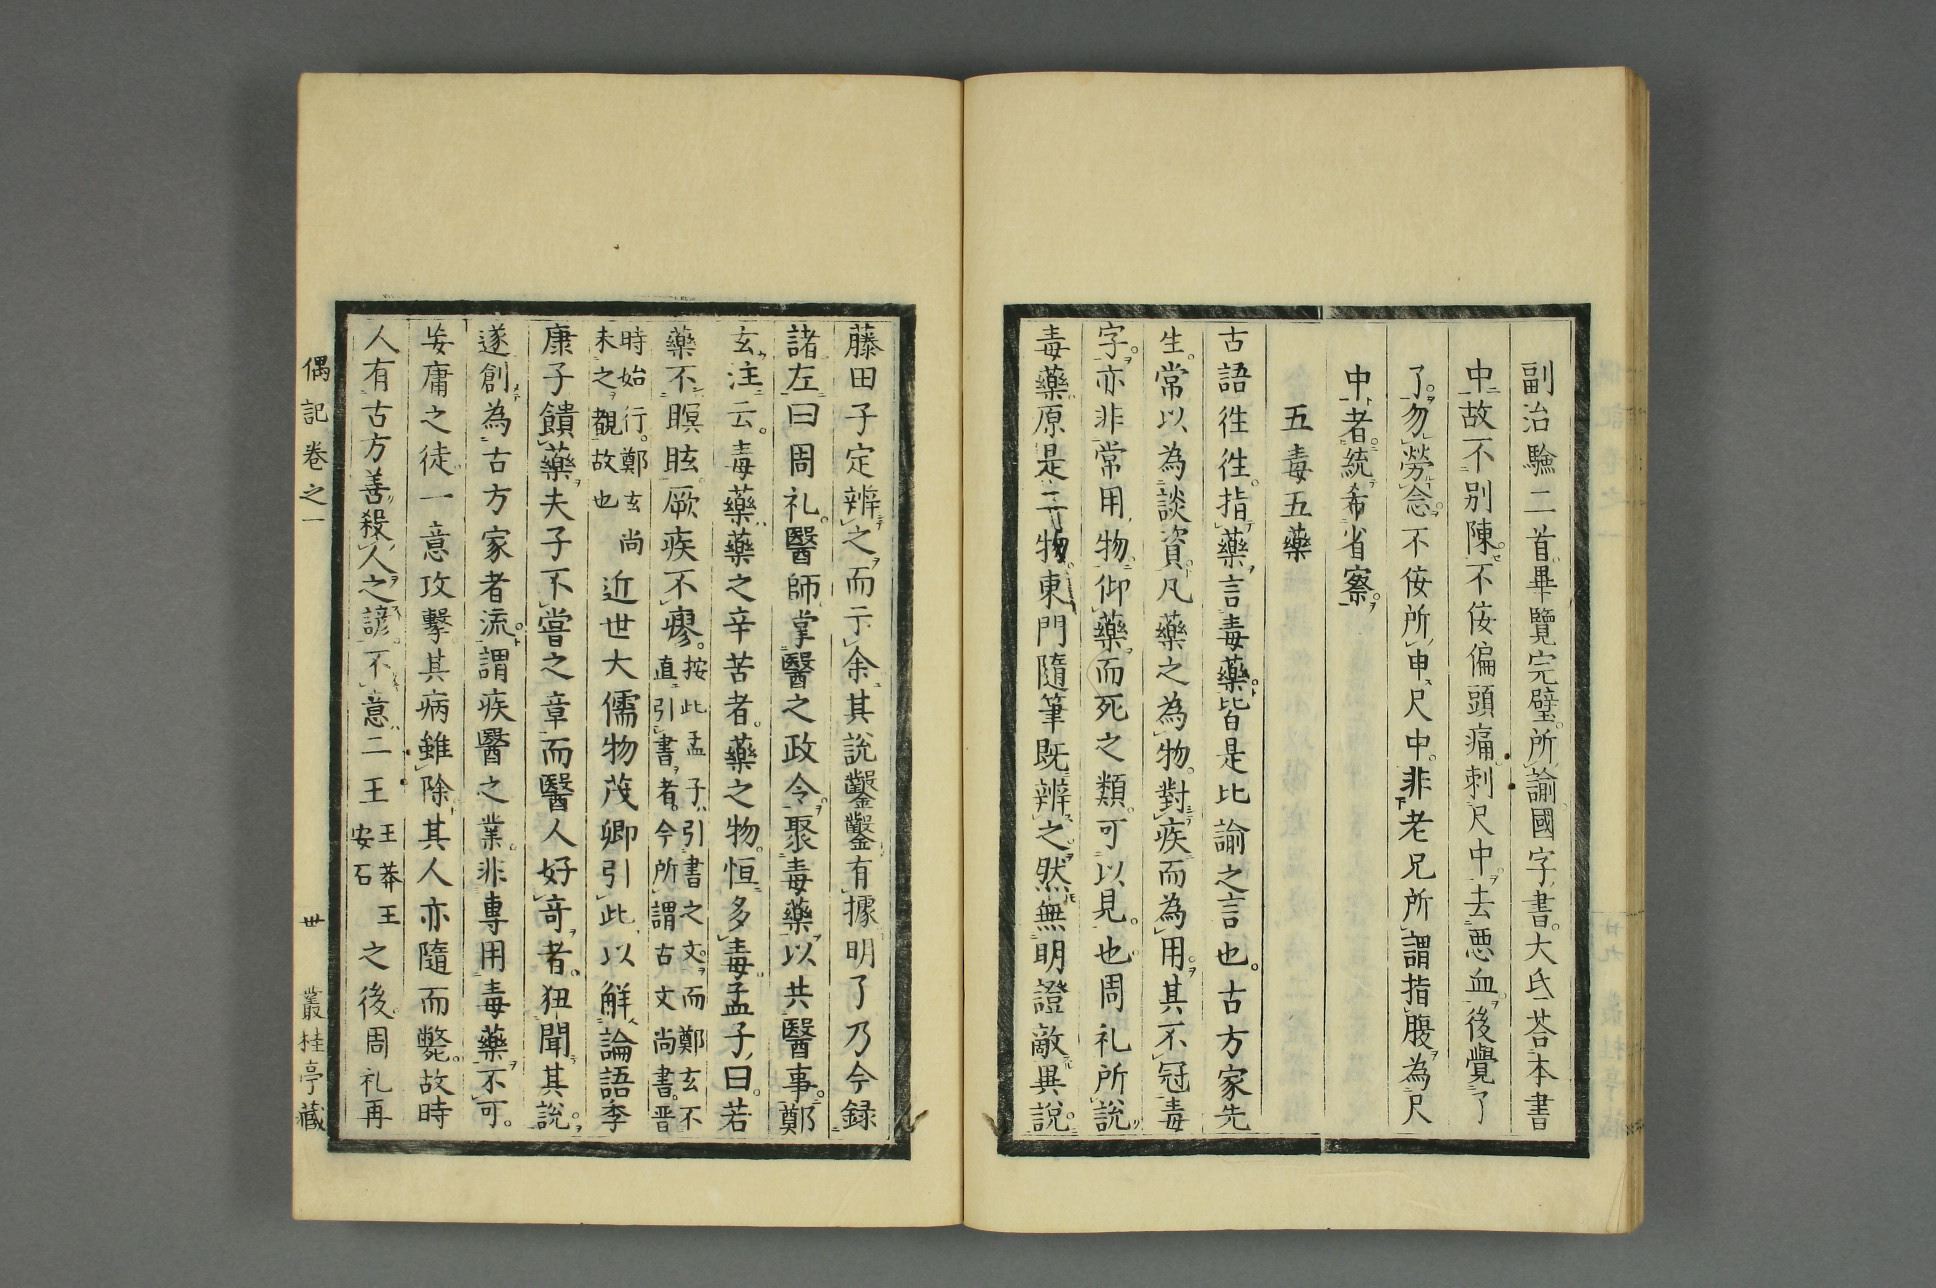 副治驗二首畢覽完璧所諭國字書大氐荅本書
中故不別陳不侫偏頭痛刺尺中去悪血後覺了
了勿勞念不侫所申尺中非老兄所謂指腹為尺
中者統希省察
五毒五藥
古語徃徃指藥言毒藥皆是比諭之言也古方家先
生常以為談資凡藥之為物對疾而為用其不冠毒
字亦非常用物仰藥而死之類可以見也周礼所說
毒藥原是二物東門隨筆既辨之然無明證敵異說
藤田子定辨之而示余其説鑿鑿有據明了乃今録
諸左曰周礼醫師掌醫之政令聚毒藥以共醫事鄭
玄注云毒藥藥之辛苦者藥之物恒多毒孟子曰若
藥不瞑眩厥疾不瘳按此孟子引書之文而鄭玄不
直引書者今所謂古文尚書晋
時始行鄭玄尚
未之觀故也近世大儒物茂卿引此以解論語季
康子饋藥夫子不嘗之章而醫人好竒者狃聞其說
遂創為古方家者流謂疾醫之業非專用毒藥不可
妄庸之徒一意攻擊其病雖除其人亦隨而斃故時
人有古方善殺人之諺不意二王王莽王
安石之後周礼再
偶記卷之一
丗
叢桂亭藏